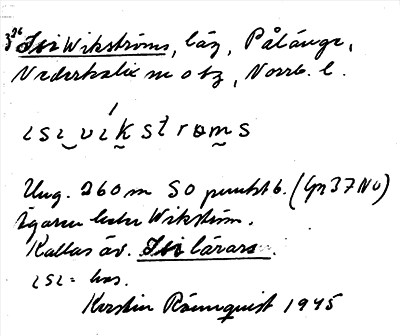 3 26 Isi Wikströms, läg, Pålänge,
Nederkalix sn o tg, Norrb. l.
ɩsɩ vík strøms
Ung. 260 m SO punkt 6. (Gn 37 No)
Ägaren heter Wikström.
Kallas äv. Isi lärars.
ɩsɩ = hos.
Kerstin Rönnquist 1945